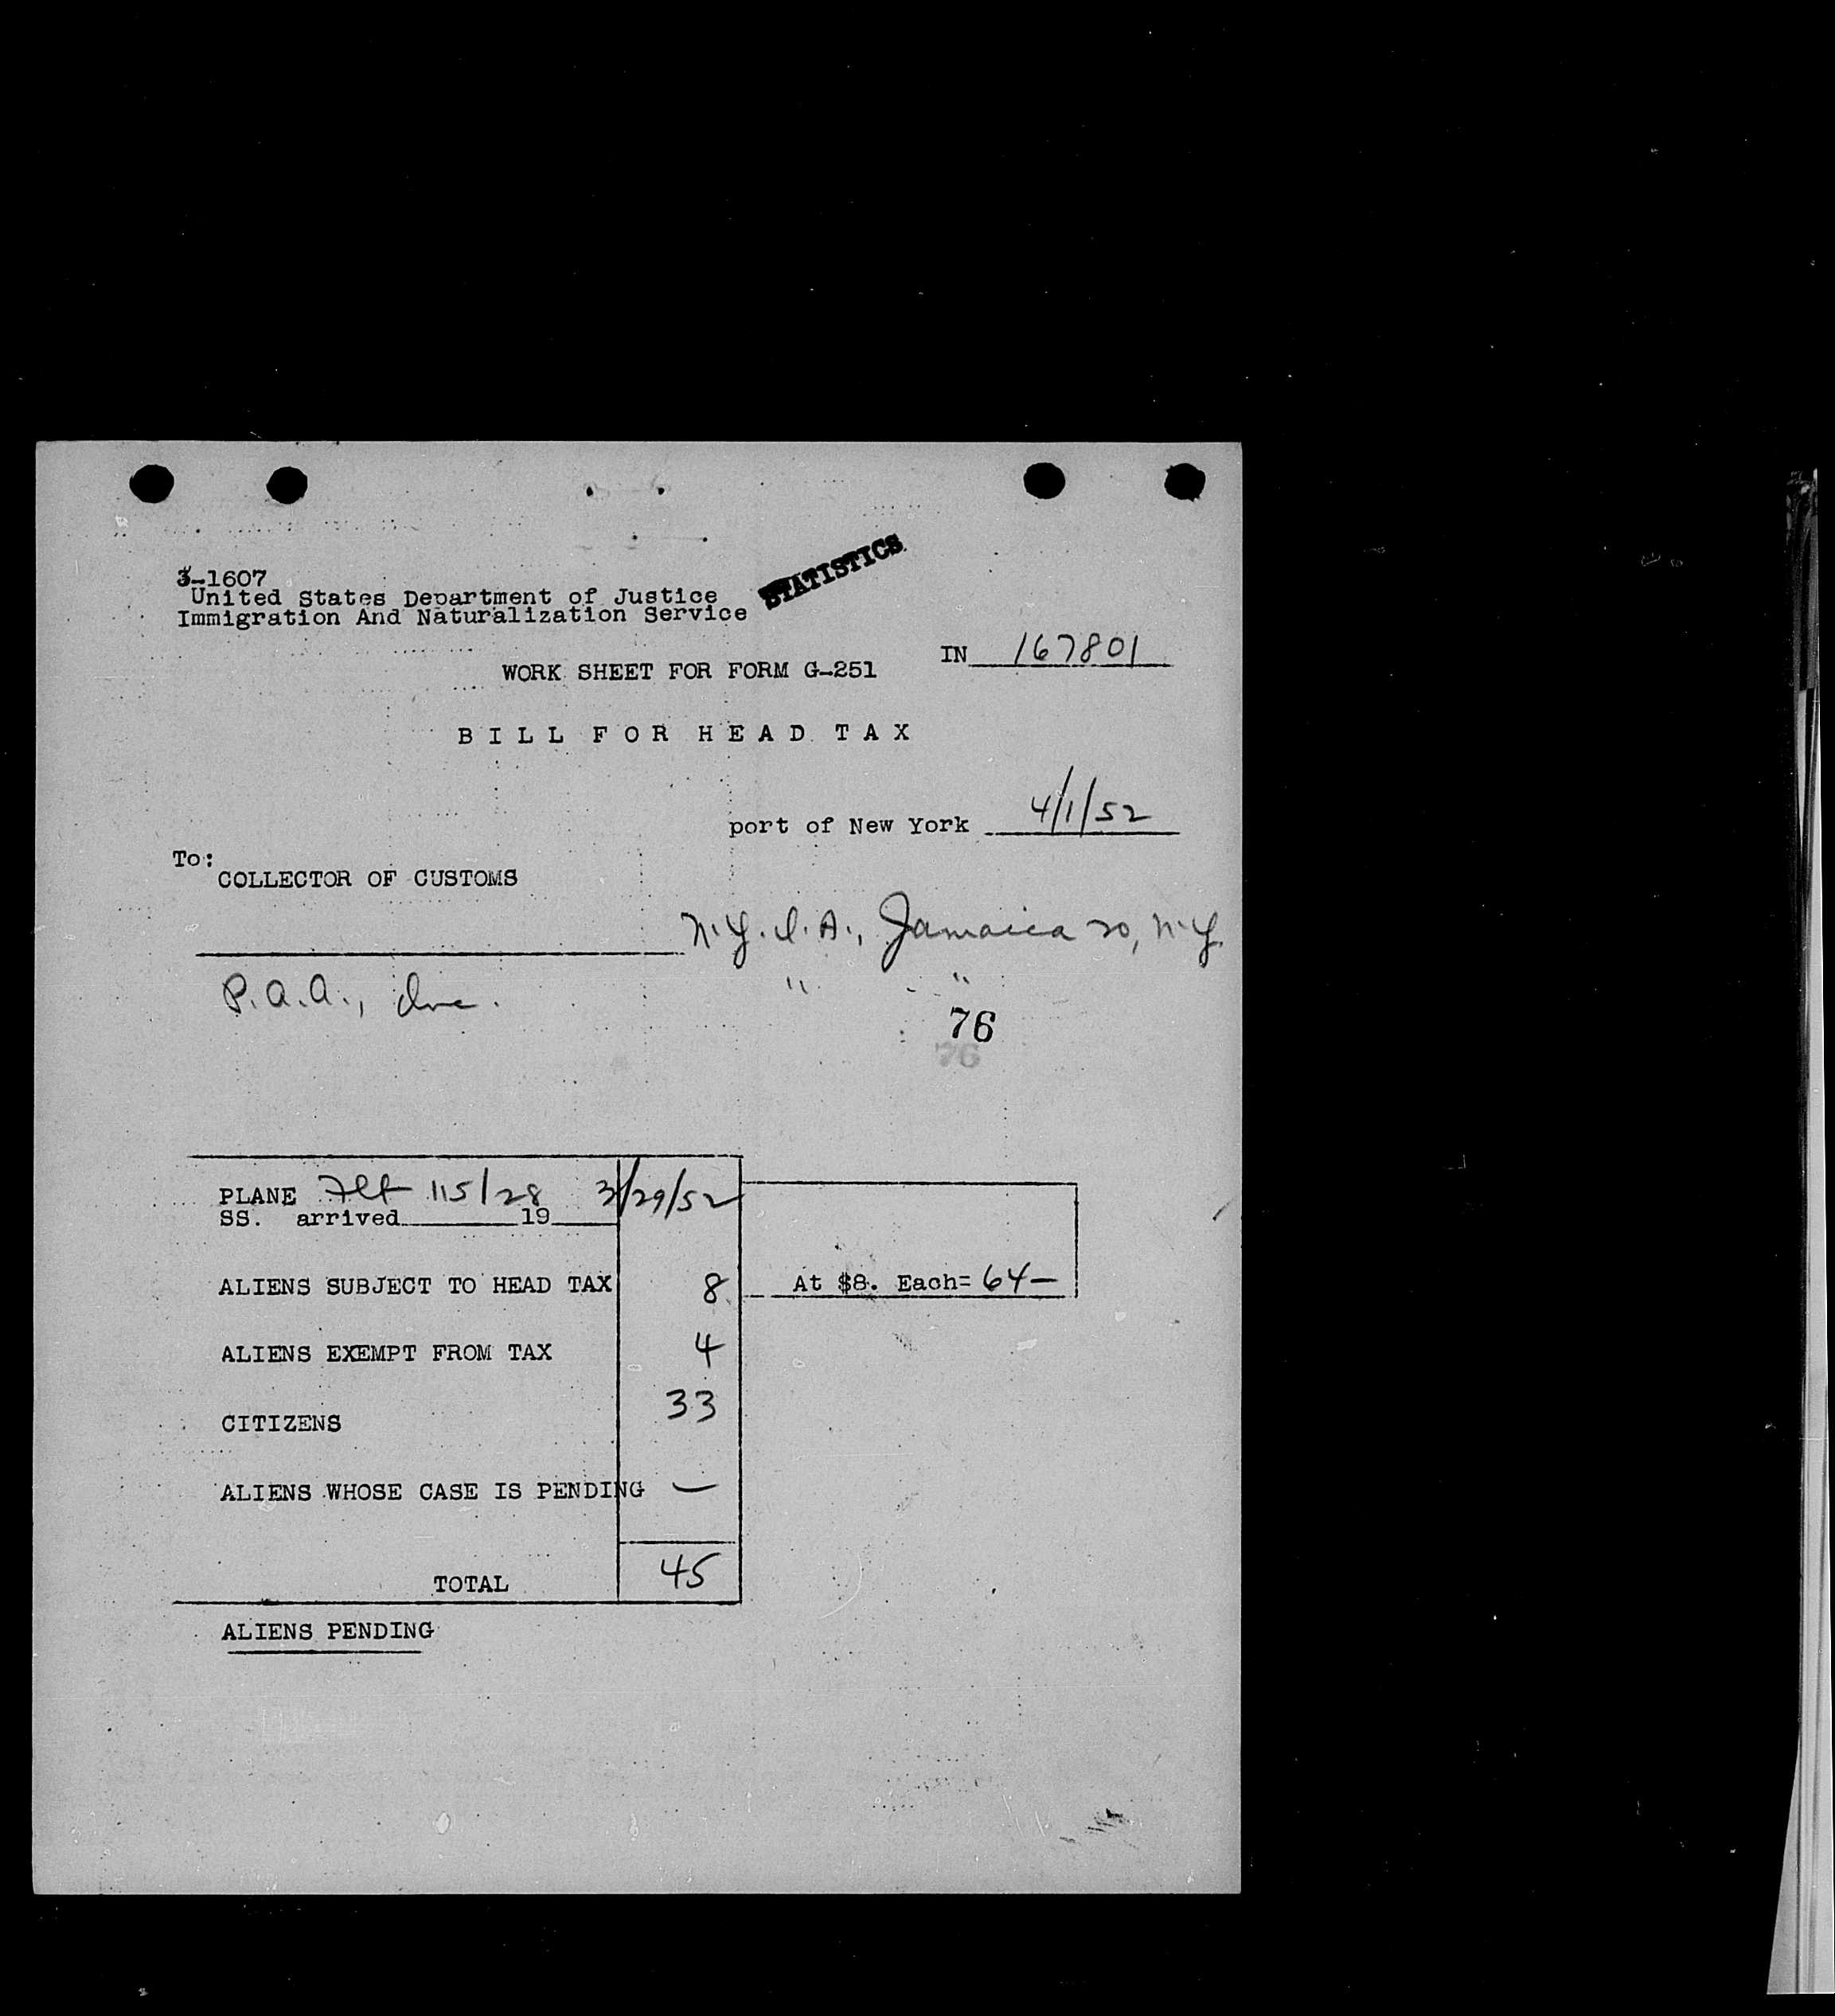 3-1607
United States Department of Justice
Immigration And Naturalization Service
STATISTICS
IN 167801
WORK SHEET FOR FORM G-251
BILL FOR HEAD TAX
port of New York 4/1/52
To:
COLLECTOR OF CUSTOMS
N.Y.I.A., Jamaica 20, N.Y.
P.A.A., Inc. " "
76
76
PLANE Flt 115/28 3/29/52
SS. arrived 19
ALIENS SUBJECT TO HEAD TAX 8 At $8. Each= 64—
ALIENS EXEMPT FROM TAX 4
CITIZENS 33
ALIENS WHOSE CASE IS PENDING —
TOTAL 45
ALIENS PENDING